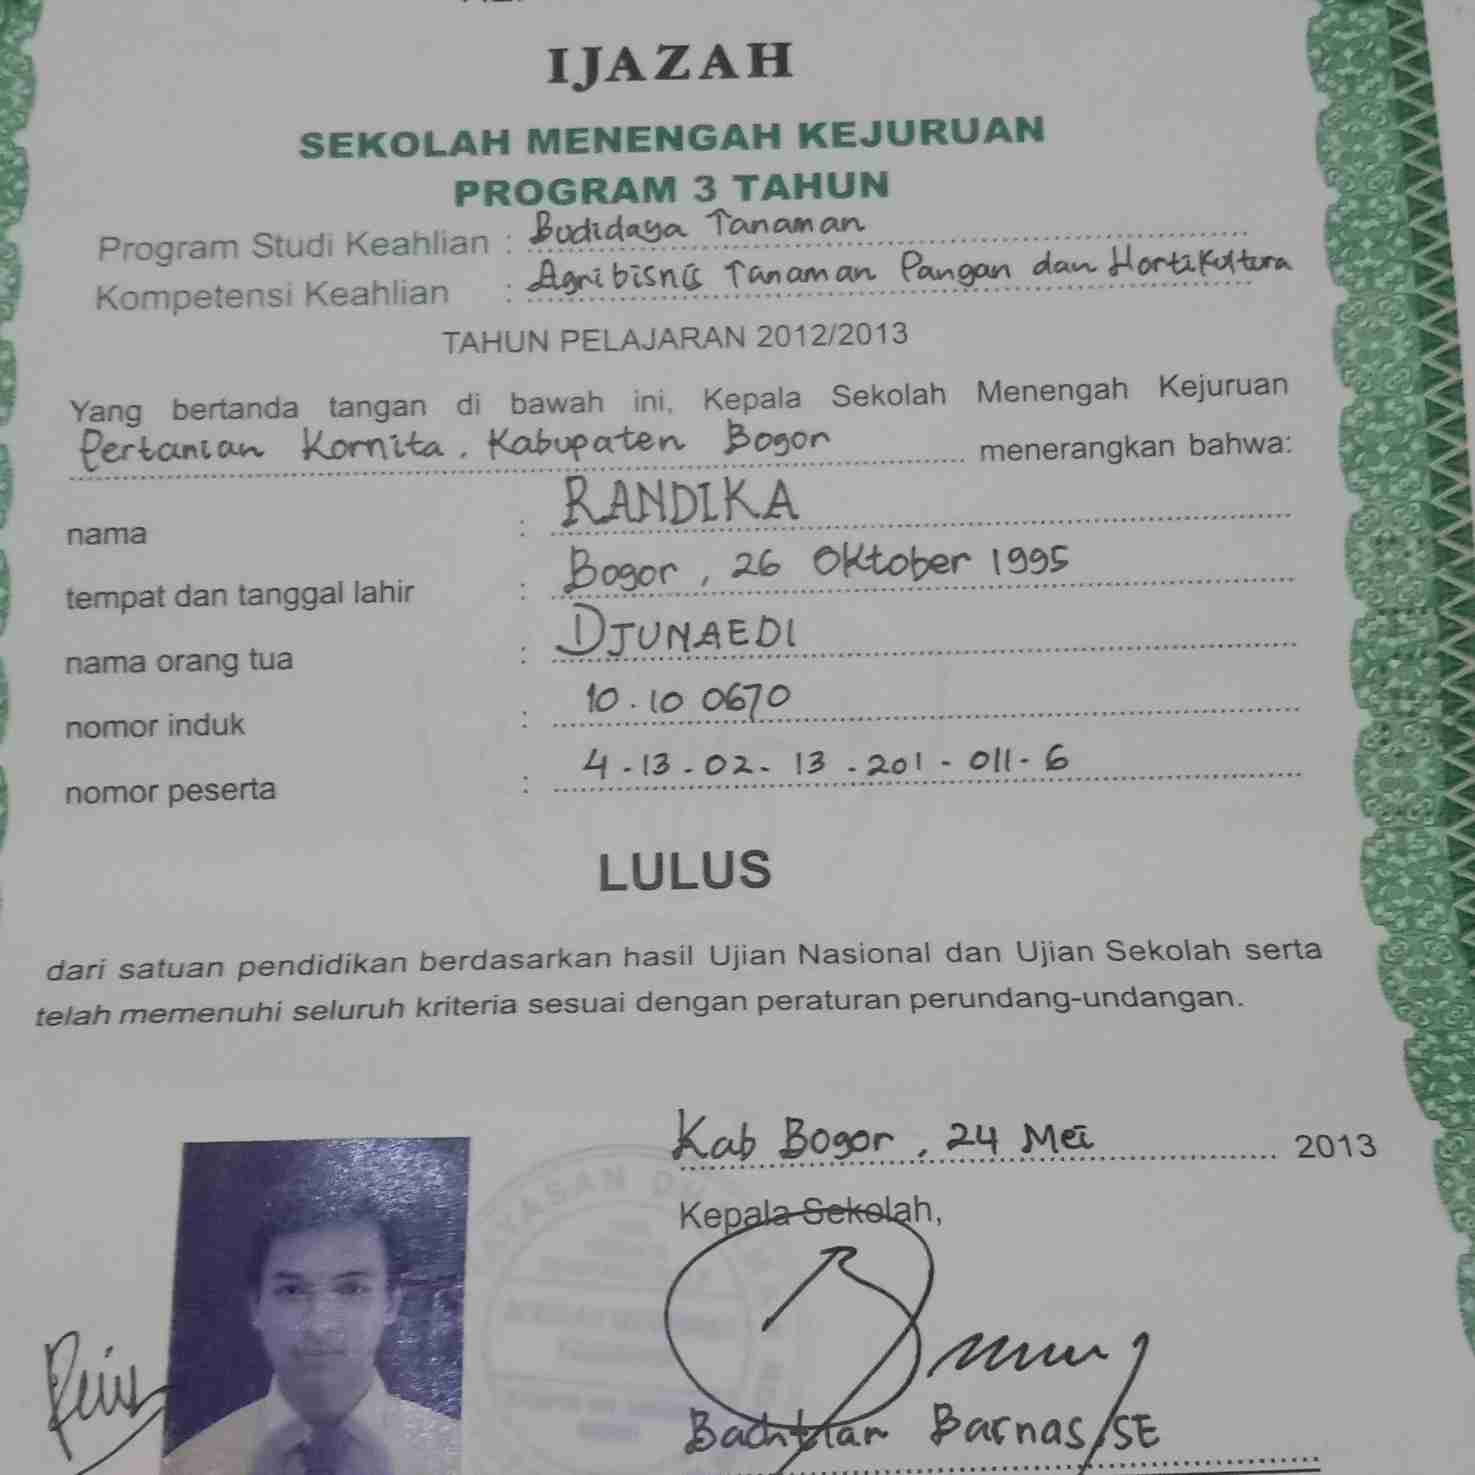 IJAZAH
SEKOLAH MENENGAH KEJURUAN
PROGRAM 3 TAHUN
Program Studi Keahlian : Budidaya Tanaman
Kompetensi Keahlian : Agribisnis Tanaman Pangan dan Hortikultura
TAHUN PELAJARAN 2012/2013
Yang bertanda tangan di bawah ini, Kepala Sekolah Menengah Kejuruan
Pertanian Kornita, Kabupaten Bogor menerangkan bahwa:
nama : RANDIKA
tempat dan tanggal lahir : Bogor, 26 Oktober 1995
nama orang tua : DJUNAEDI
nomor induk : 10.10 0670
nomor peserta : 4-13-02-13-201-011-6
LULUS
dari satuan pendidikan berdasarkan hasil Ujian Nasional dan Ujian Sekolah serta
telah memenuhi seluruh kriteria sesuai dengan peraturan perundang-undangan.
Kab Bogor, 24 Mei 2013
Kepala Sekolah,
YASAN
Bachtiar Barnas, SE